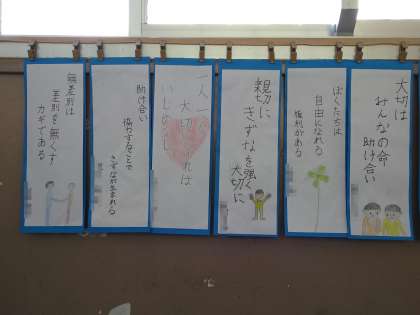 大切は
みんなの命
助け合い
ぼくたちは
自由になれる
権利がある
親切に
きずなを強く
大切に
一人一人
大切にすれば
いじめなし
助け合い
協力することで
きずなが生まれる
無差別は
差別を無くす
カギである